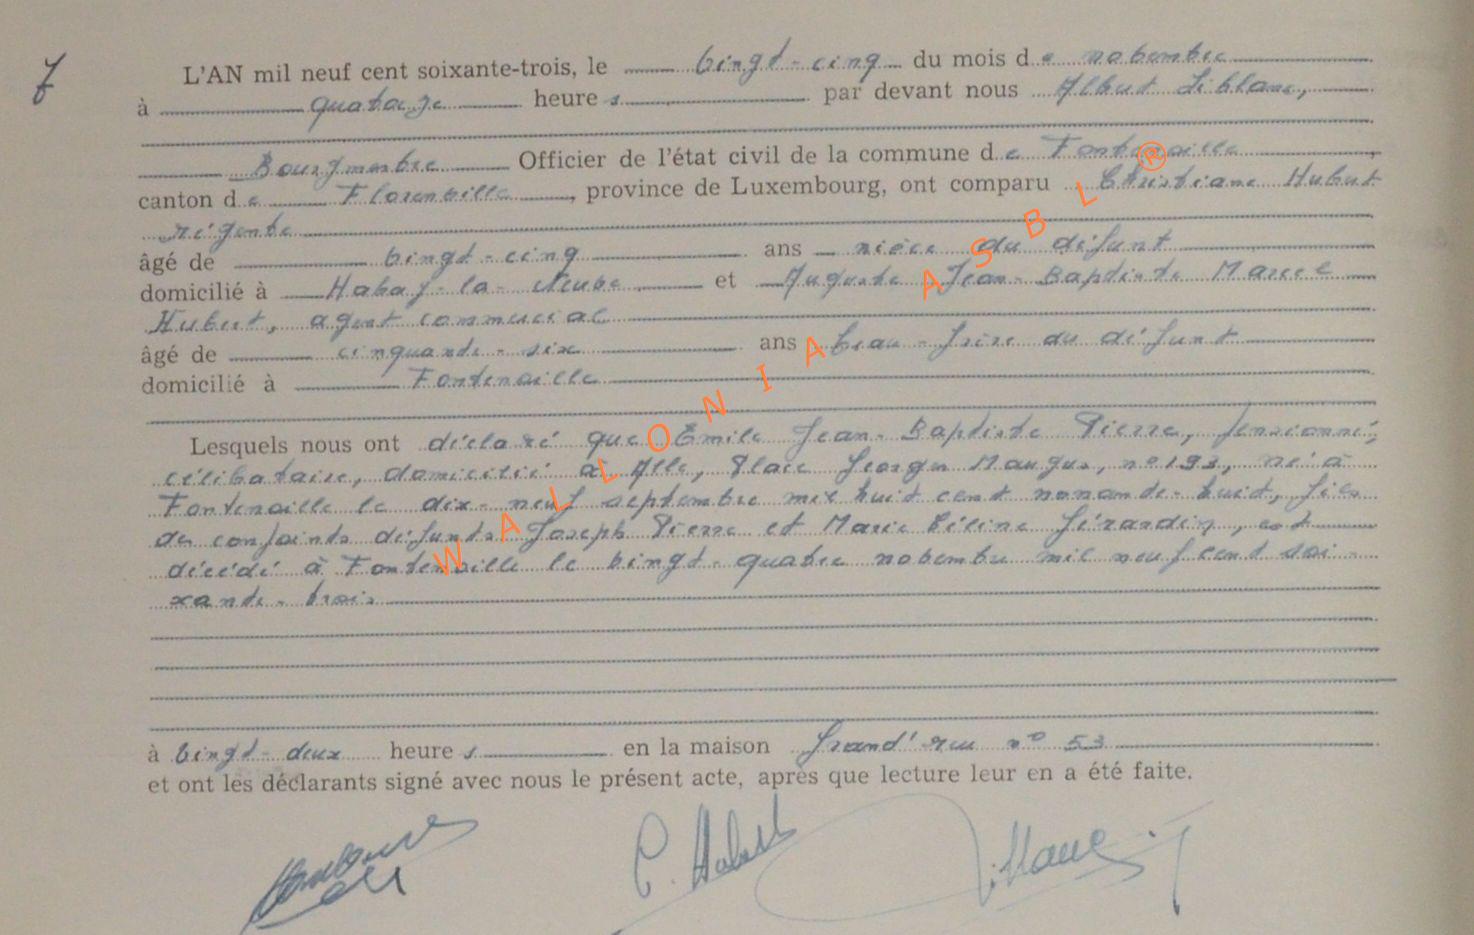 7
L'AN mil neuf cent soixante-trois, le vingt-cinq du mois de novembre
à quatorze heures par devant nous Albert Leblanc,
Bourgmestre Officier de l'état civil de la commune de Fontenoille
canton de Florenville, province de Luxembourg, ont comparu Christiane Hubert
régente
âgé de vingt-cinq ans nièce du défunt
domicilié à Habay-la-Neuve et Auguste Jean-Baptiste Marcel
Hubert, agent commercial
âgé de cinquante-six ans beau-frère du défunt
domicilié à Fontenoille
Lesquels nous ont déclaré que Emile Jean-Baptiste Pierre, pensionné,
célibataire, domicilié à Alle, Place n° 193, né à
Fontenoille le dix-neuf septembre mil huit cent nonante-huit, fils
des conjoints défunts Joseph Pierre et Marie Céline Gérardin, est
décédé à Fontenoille le vingt-quatre novembre mil neuf cent soi-
xante-trois
à vingt-deux heures en la maison Grand'rue n° 53
et ont les déclarants signé avec nous le présent acte, après que lecture leur en a été faite.
C. Hubert
WALLONIA ASBL ®